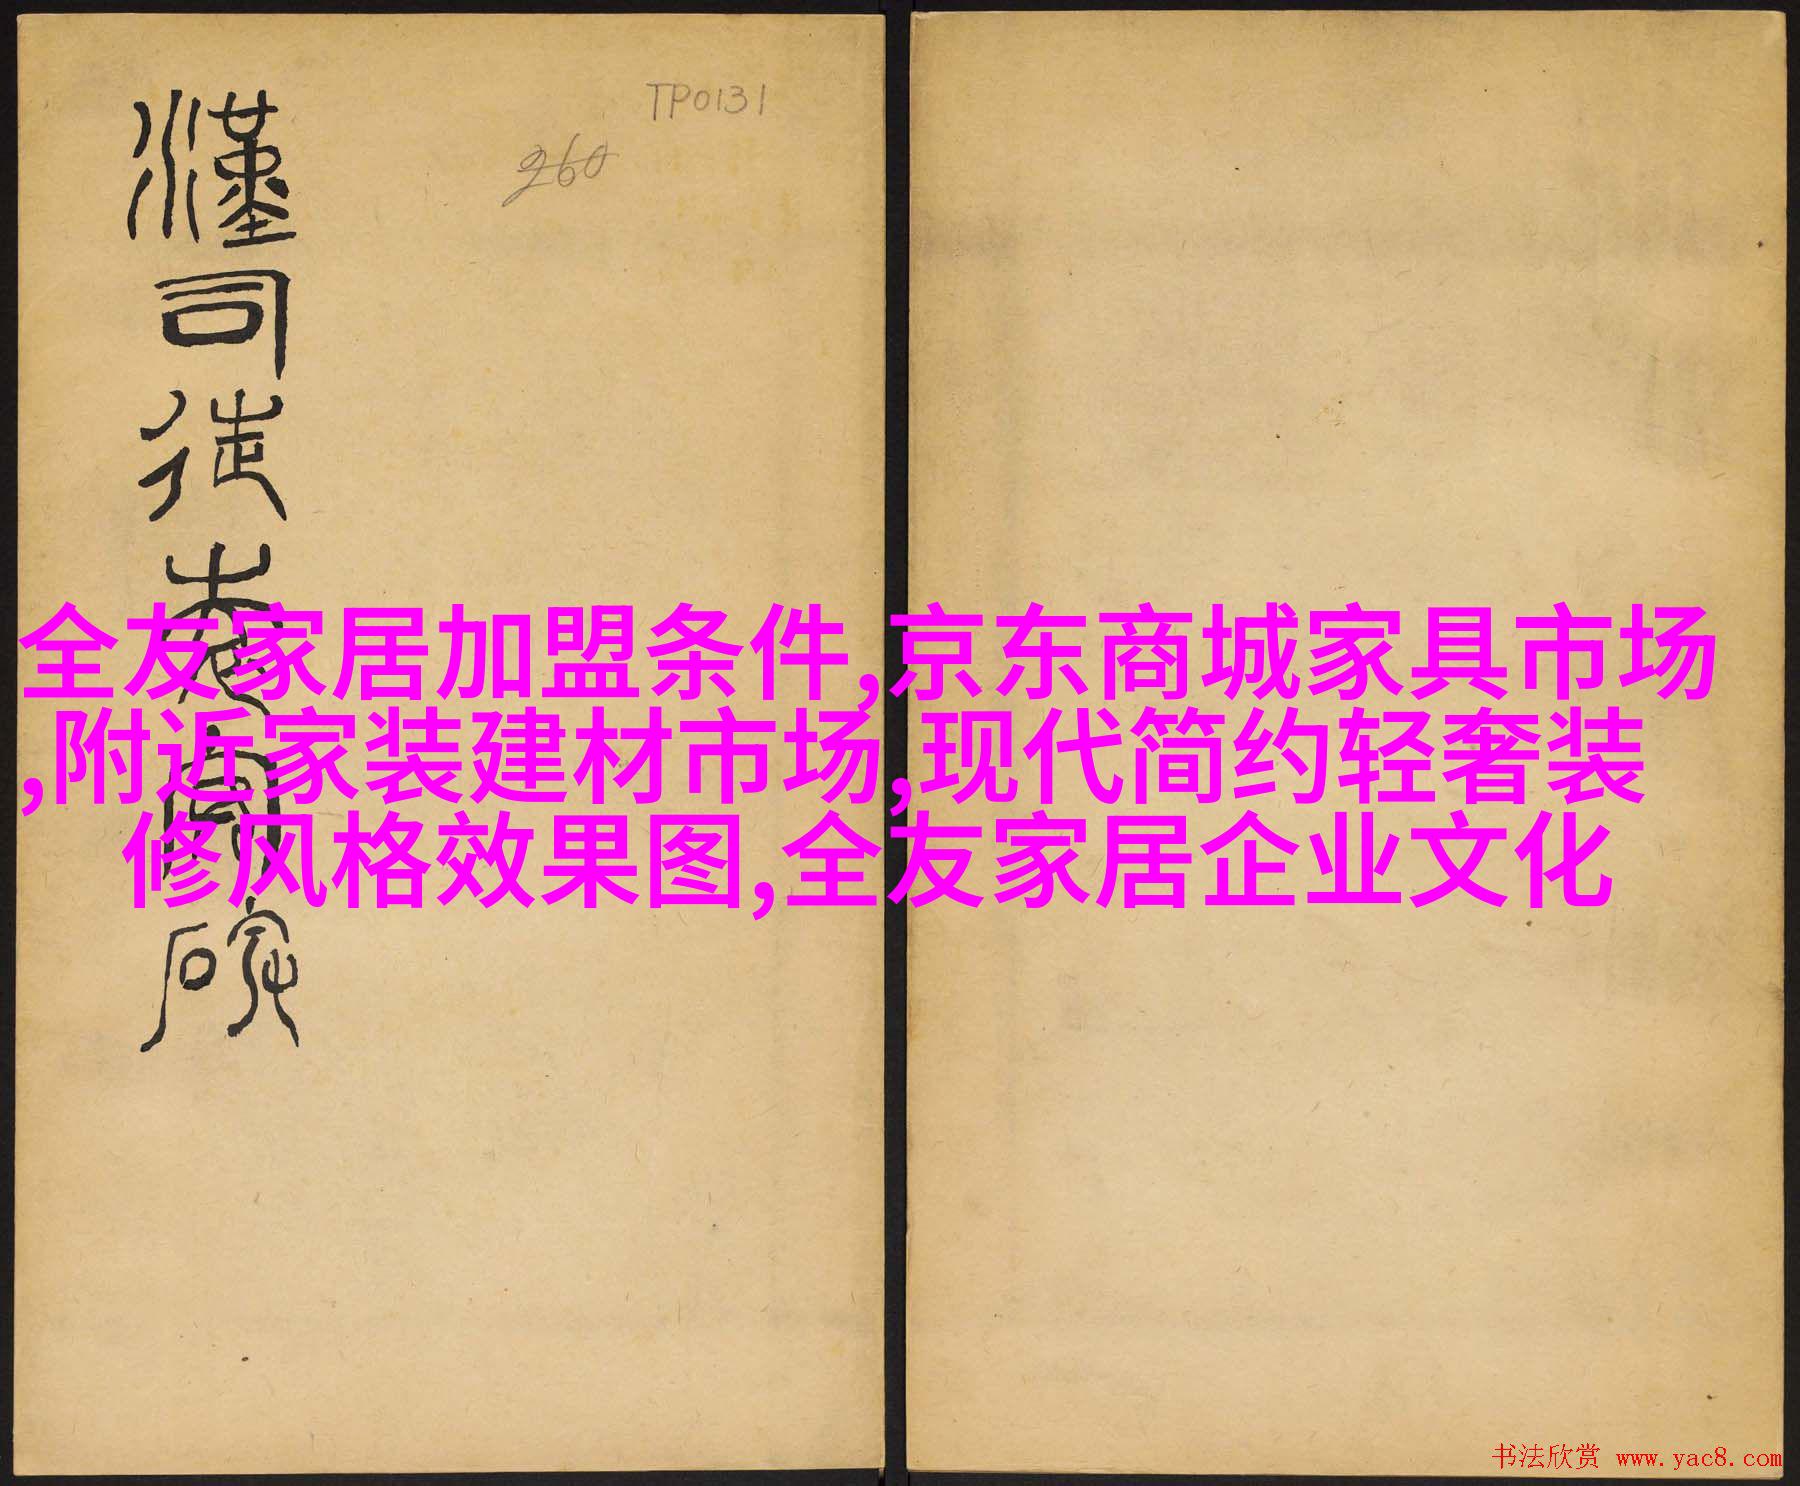 漢司徒袁安碑
TP0131
260
全友家居加盟条件,京东商城家具市场
,附近家装建材市场,现代简约轻奢装
修风格效果图,全友家居企业文化
书法欣赏 www.yac8.com